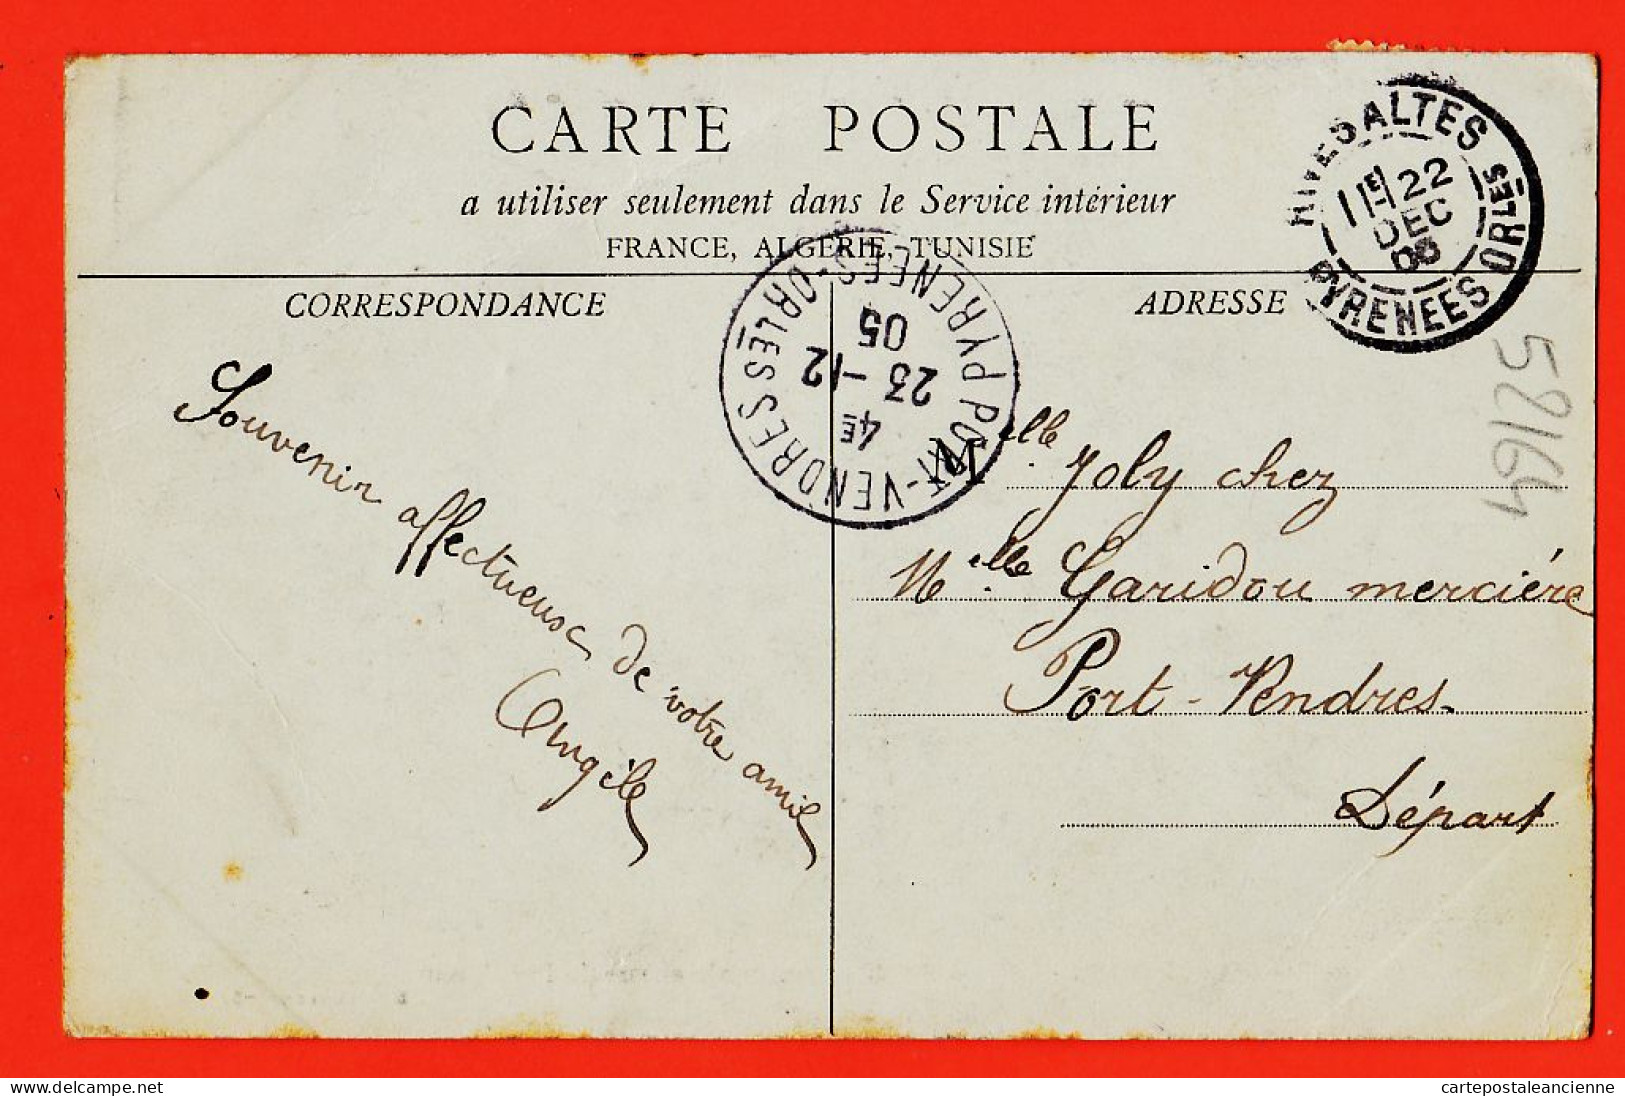 CARTE POSTALE
a utiliser seulement dans le Service intérieur
FRANCE, ALGÉRIE, TUNISIE
CORRESPONDANCE
ADRESSE
RIVESALTES
1 E 22
DEC
05
PYRENEES ORLES
PORT-VENDRES
4E
23-12
05
PYRENEES-ORLES
58164
Souvenir affectueux de votre amie
Angèle
Melle Joly chez
Melle Garidou merciére
Port-Vendres
Départ
cartepostaleancienne